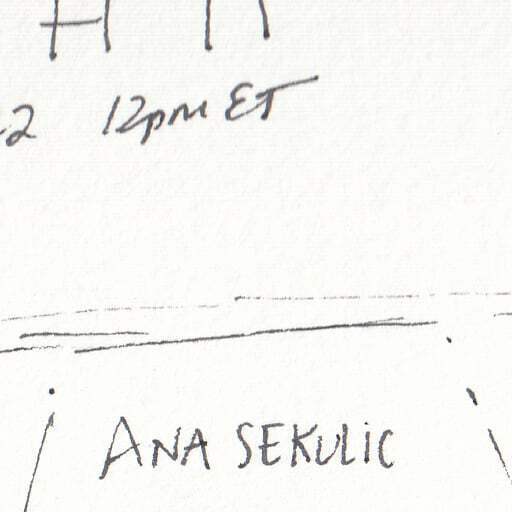 12pm ET
ANA SEKULIC